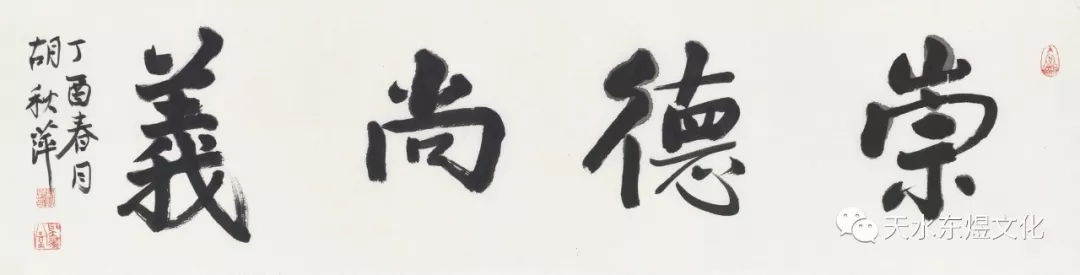 崇德尚義
丁酉春月
胡秋萍
天水东煜文化